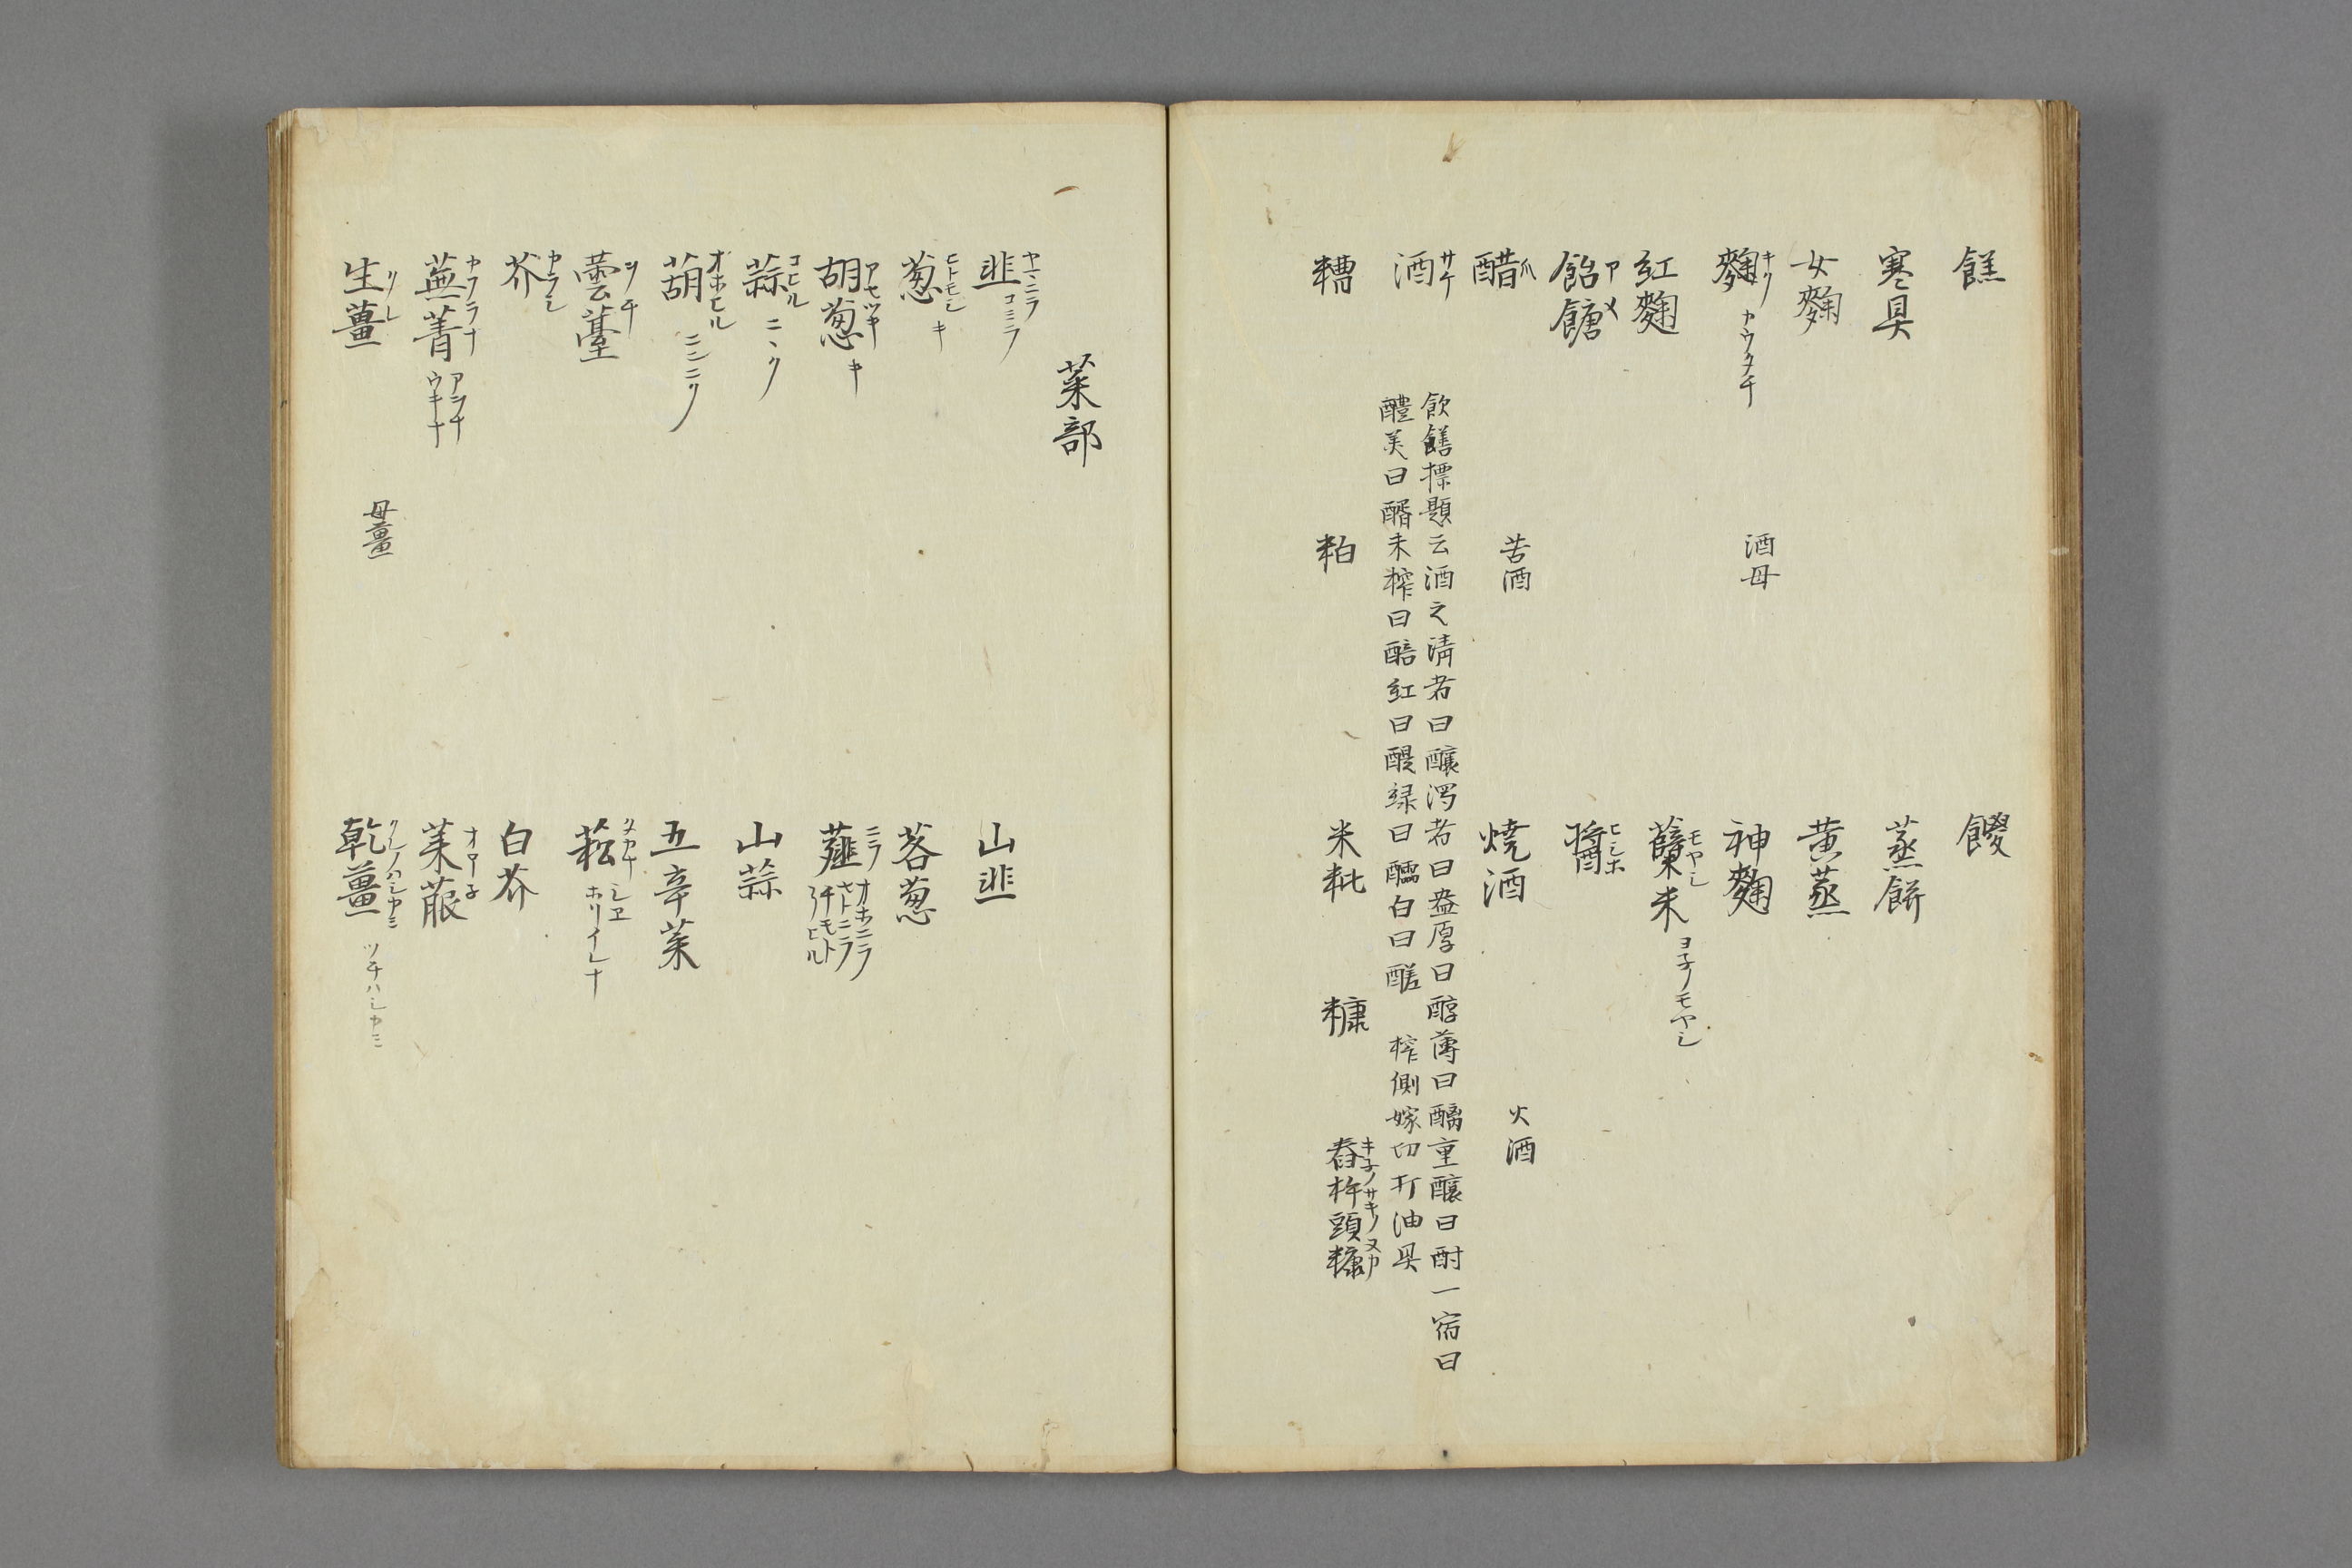 餻　餕
寒具　蒸餅
女麴　黄蒸
麴　カウタチ　酒母　神麴
紅麴　糵米　モヤシ　ヨネノモヤシ
飴餹　アメ　醬　ヒシホ
醋　ス　苦酒　焼酒　火酒
酒　サケ
飲饍標題云酒之清者曰釀濁者曰盎厚曰醇薄曰醨重釀曰酎一宿曰
醴美曰醑未榨曰醅紅曰醍緑曰醽白曰醝　榨側嫁切打油具
糟　粕　米粃　糠　舂杵頭糠　キネノサキノヌカ
菜部
韭　ヤマニラ　コミラ　山韭
葱　ヒトモシ　キ　茖葱
胡葱　アサツキ　キ　薤　ニラ　オホニラ　サトニラ
蒜　コヒル　ニヽク　山蒜
葫　オホヒル　五辛菜
蕓薹　菘　タカナ　ホリイレナ
芥　カラシ　白芥
蕪菁　カフラナ　アヲナ　ウキナ　萊菔　オホネ
生薑　母薑　乾薑　クレノハシカミ　ツチハシカミ